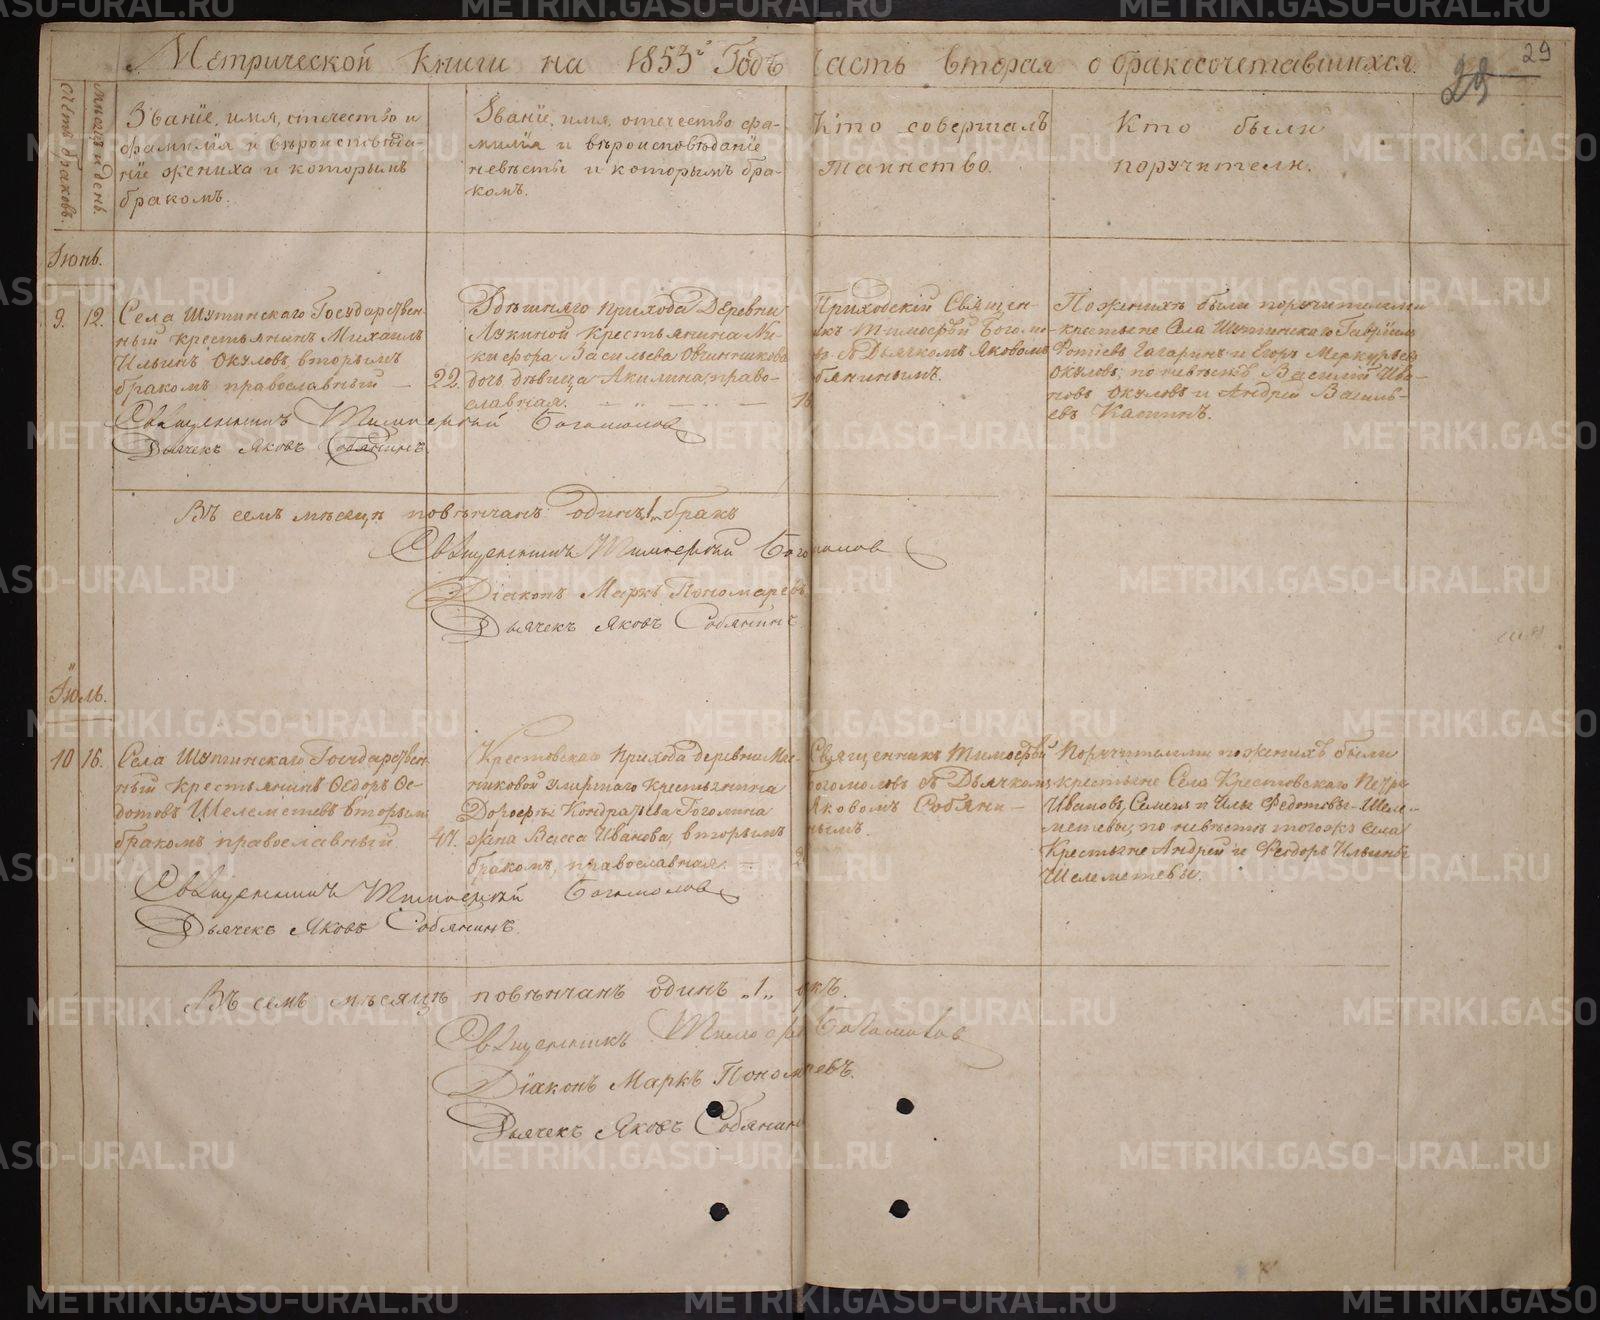 Метрической книги на 1853й Годъ часть вторая о бракосочетавшихся.
29
29
Счетъ браковъ.
Мѣсяцъ и день.
Званіе, имя, отечество и
фамилія и вѣроисповѣда-
ніе жениха и которымъ
бракомъ.
Званіе, имя, отечество фа-
милія и вѣроисповѣданіе
невѣсты и которымъ бра-
комъ.
Кто совершалъ
таинство.
Кто были
поручители.
Іюнь.
9. 12.
Села Шутинскаго Государствен-
ный крестьянинъ Михаилъ
Ильинъ Окуловъ, вторымъ
бракомъ православный —
22.
Здѣшняго прихода Деревни
Лукиной Крестьянина Ни-
кифора Васильева Овчинникова
дочь дѣвица Акилина, право-
славная.
Приходскій Священ-
никъ Тимофей Богомо-
въ съ Дьячкомъ Яковомъ
бянинымъ.
По женихѣ были поручителями
крестьяне Села Шутинскаго Гавріилъ
Фотіевъ Гагаринъ и Егоръ Меркурьевъ
Окуловъ; по невѣстѣ Василій Ива-
новъ Окуловъ и Андрей Василь-
евъ
Священникъ Тимофей Богомолов
Дьячекъ Яковъ Собянинъ.
Въ семъ мѣсяцѣ повѣнчанъ одинъ „1„ бракъ
Священникъ Тимофей Богомолов
Діаконъ Маркъ Пономаревъ
Дьячекъ Яковъ Собянинъ
Іюль.
10 16.
Села Шутинскаго Государствен-
ный крестьянинъ Ѳедоръ Ѳе-
дотовъ Шелеметевъ вторымъ
бракомъ православный.
47.
Крестовскаго Прихода деревни Мас-
никовой умершаго крестьянина
Дорофея Кондратьева Гоголина
жена Васса Иванова, вторымъ
бракомъ, православная. —
Священникъ Тимофей
Богомоловъ съ Дьячкомъ
Яковомъ Собяни-
нымъ.
Поручителями по женихѣ были
крестьяне Села Крестовскаго Петръ
Ивановъ, Семенъ и Илья Федотовы Шеле-
метевы, по невѣстѣ тогожъ села
Крестьяне Андрей и Ѳедоръ Ильины
Шелеметевы.
Священникъ Тимофей Богомолов
Дьячекъ Яковъ Собянинъ.
Въ семъ мѣсяцѣ повѣнчанъ одинъ „1„ акъ.
Священникъ Тимофей Богомолов
Діаконъ Маркъ Пономаревъ.
Дьячекъ Яковъ Собянинъ
METRIKI.GASO-URAL.RU